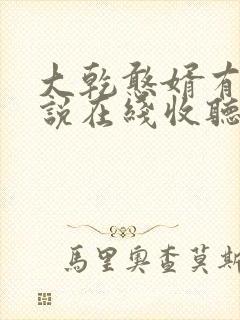 大乾憨婿有
說在綫收聽
馬里奧查莫斯